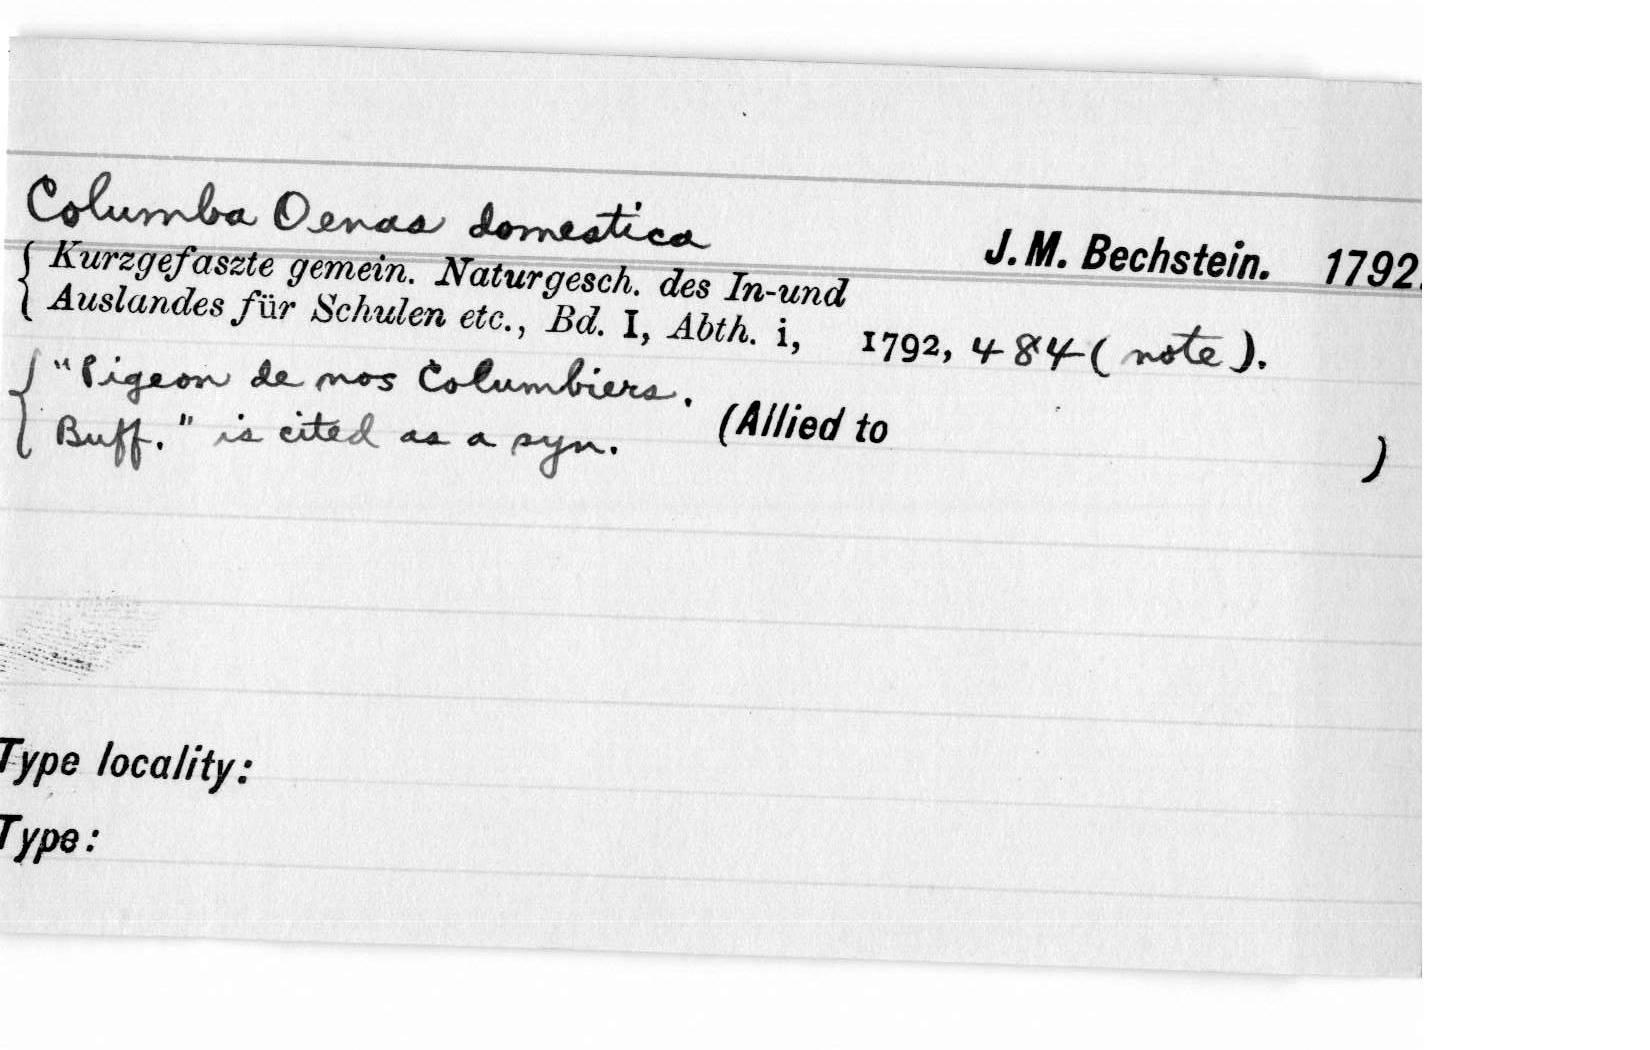 Columba Oenas domestica J. M. Bechstein. 1792.
Kurzgefaszte gemein. Naturgesch. des In-und
Auslandes für Schulen etc., Bd. I, Abth. i, 1792, 484 (note).
"Pigeon de nos Columbiers.
Buff." is cited as a syn. (Allied to )
Type locality:
Type: